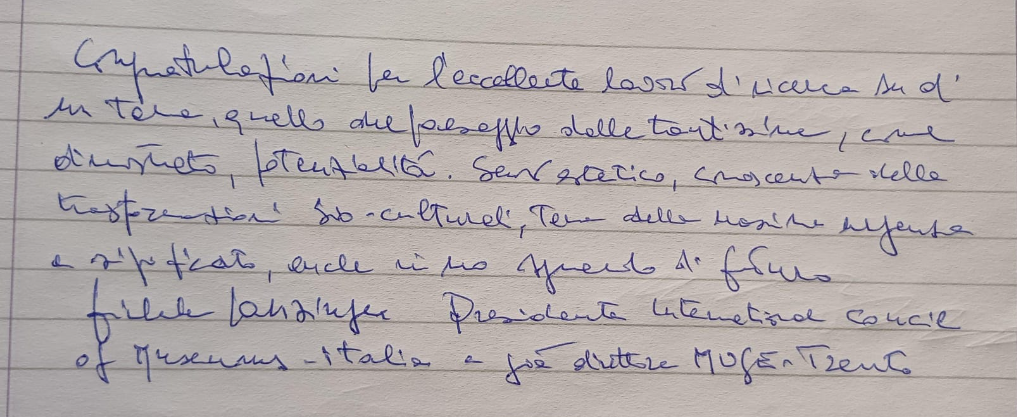 Congratulazioni per l'eccellente lavoro di ricerca su d'
un tema, quello del paesaggio dalle tantissime, come
dimostrato, potenzialità. Senso estetico, conoscenza delle
trasformazioni socio-culturali, tema della nostra urgenza
e significato, anche in uno sguardo di futuro
Michele Lanzinger Presidente International Council
of Museums - Italia e già direttore MUSE - Trento